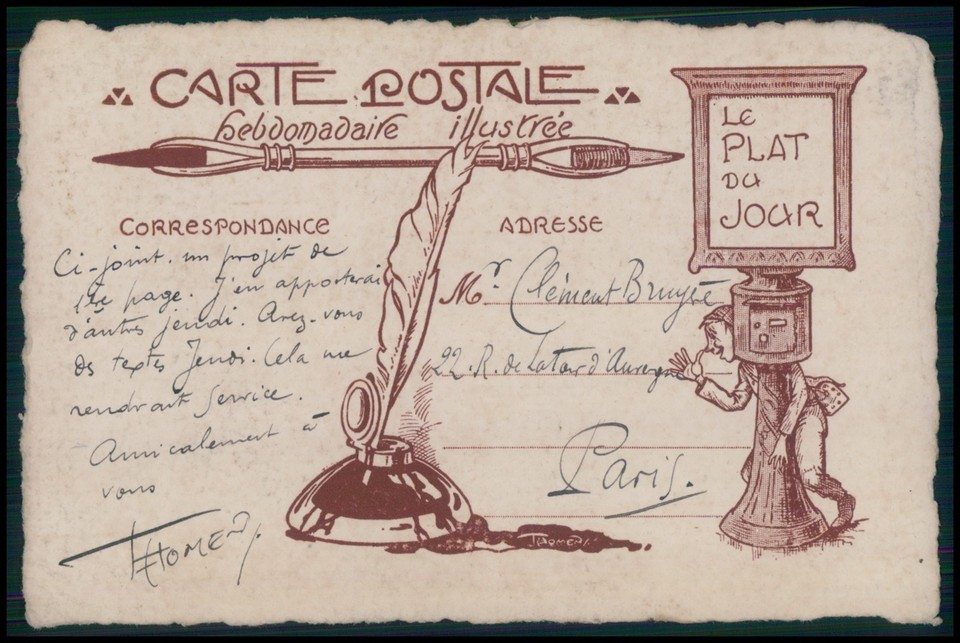 CARTE POSTALE
hebdomadaire illustrée
LE
PLAT
DU
JOUR
CORRESPONDANCE
Ci-joint. un projet de
1ère page. J'en apporterai
d'autres jeudi. Avez-vous
des textes Jeudi. Cela me
rendrait service.
Amicalement à
vous
THOMEN.
ADRESSE
Mr. Clément Bruyère
22. R. de Latour d'Auvergne
Paris.
THOMEN.